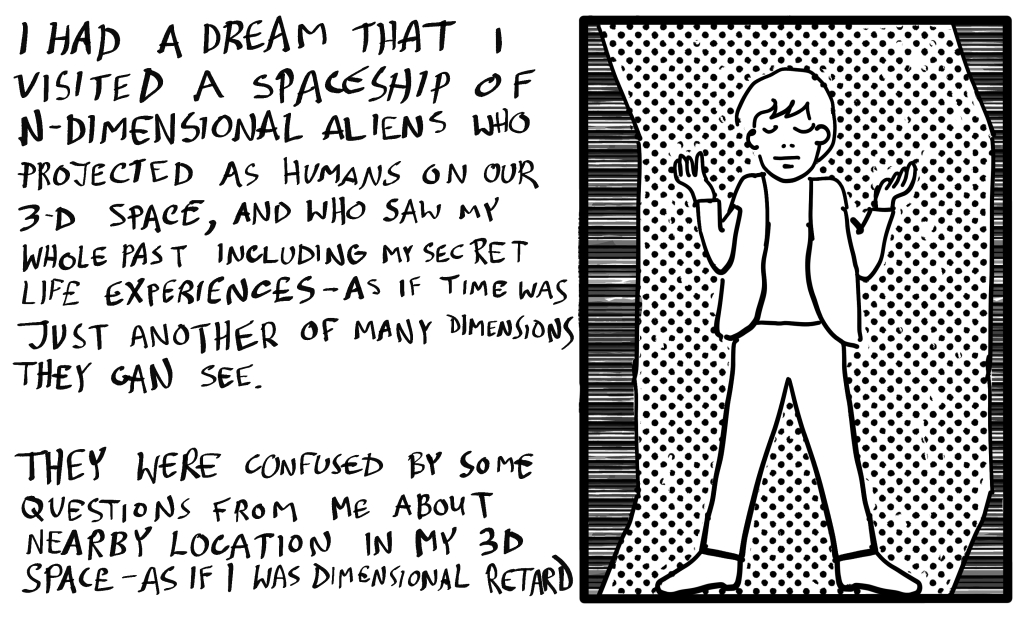 I HAD A DREAM THAT I
VISITED A SPACESHIP OF
N-DIMENSIONAL ALIENS WHO
PROJECTED AS HUMANS ON OUR
3-D SPACE, AND WHO SAW MY
WHOLE PAST INCLUDING MY SECRET
LIFE EXPERIENCES-AS IF TIME WAS
JUST ANOTHER OF MANY DIMENSIONS
THEY CAN SEE.
THEY WERE CONFUSED BY SOME
QUESTIONS FROM ME ABOUT
NEARBY LOCATION IN MY 3D
SPACE-AS IF I WAS DIMENSIONAL RETARD